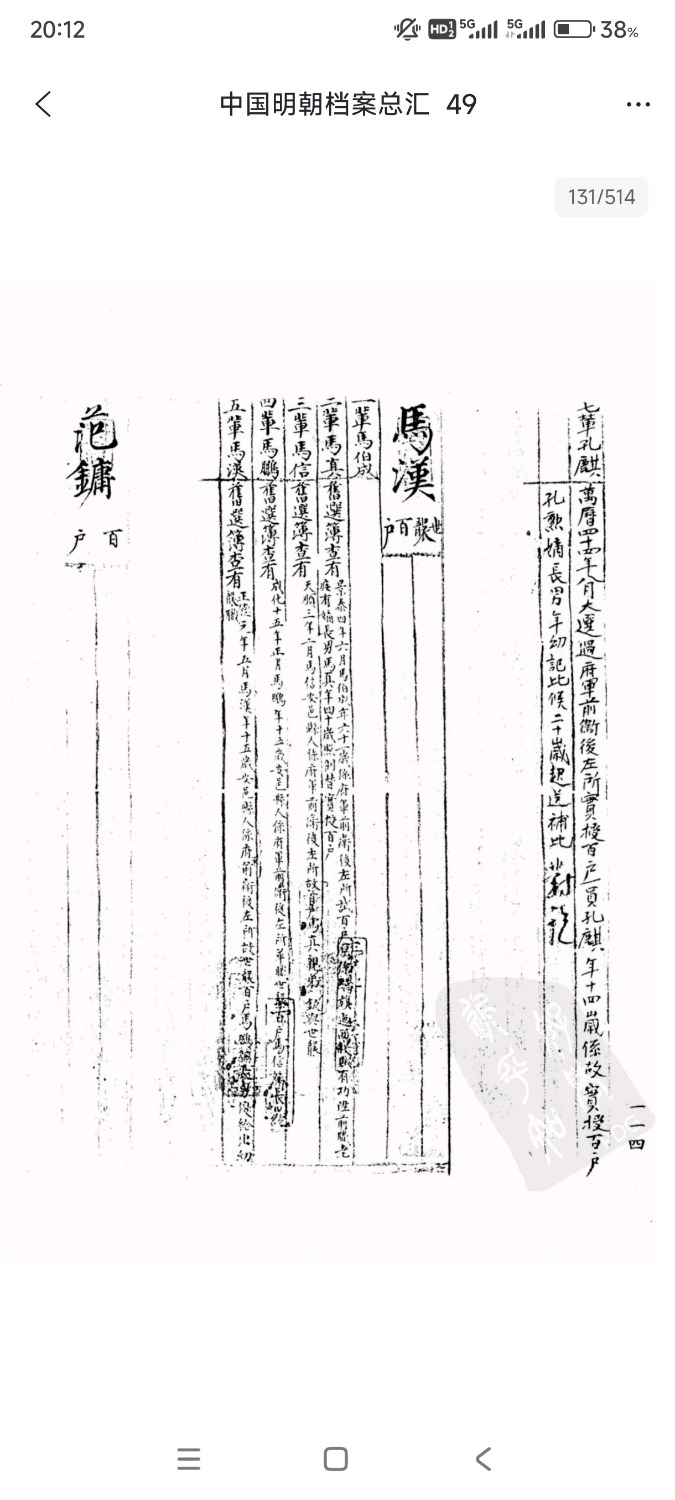 20:12
HD 1 2 5G 5G 38%
中国明朝档案总汇 49
131/514
七輩孔麒 萬曆四十四年八月大選過府軍前衛後左所實授百戶一員孔麒年十四歲係故實授百戶
孔勲嫡長男年幼記比候二十歲起送補比
一一四
馬漢
世襲百戶
一輩馬伯成
二輩馬真 舊選簿查有 景泰四年六月馬伯成年六十一歲係府軍前衛後左所試百戶 有功陞前職老
疾有嫡長男馬真年四十歲照例替實授百戶
三輩馬信 舊選簿查有 天順三年二月馬信安邑縣人係府軍前衛後左所故 馬真親弟欽與世襲
四輩馬鵬 舊選簿查有 成化十五年正月馬鵬年十五歲安邑縣人係府軍前衛後左所 世襲百戶馬信嫡長男
五輩馬漢 舊選簿查有 正德元年五月馬漢年十五歲安邑縣人係府前衛後左所故世襲百戶馬鵬嫡長男優給出幼
襲職
范鏞
百戶